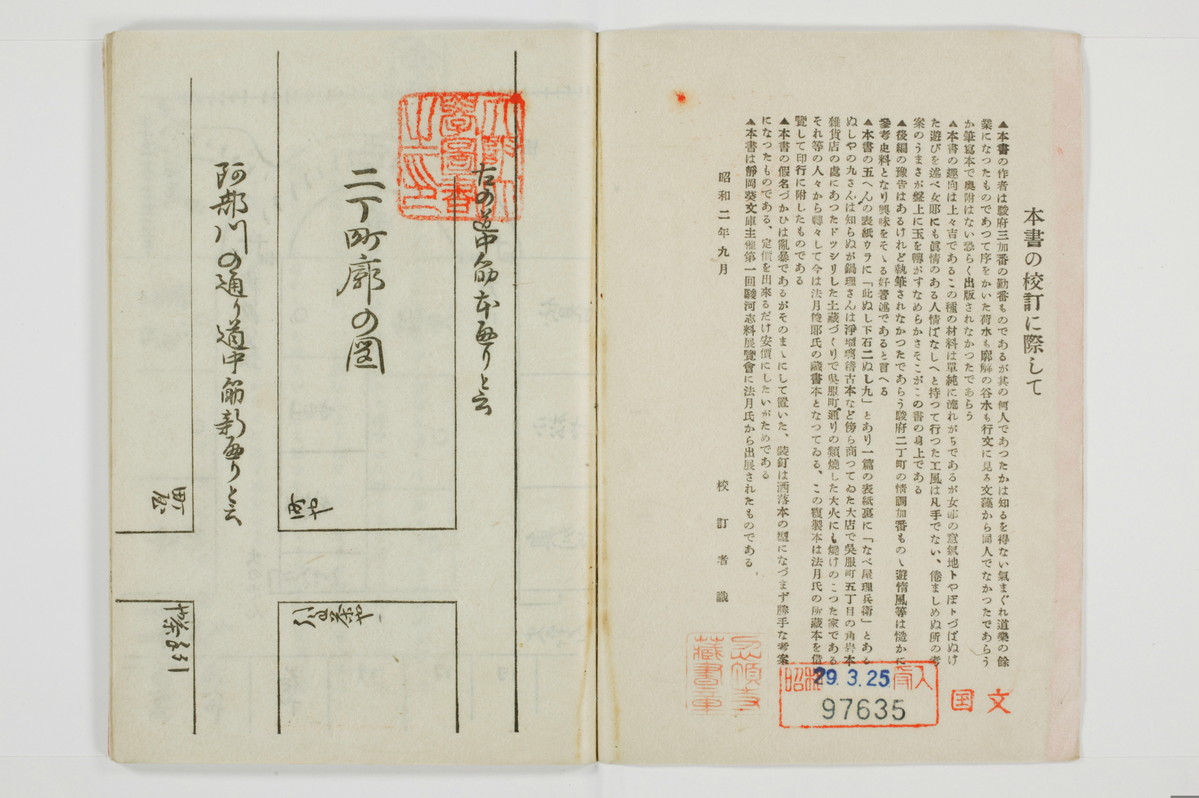 本書の校訂に際して
▲本書の作者は駿府三加番の勤番ものであるが其の何人であつたかは知るを得ない氣まぐれ道樂の餘
業になつたものであつて序をかいた荷水も廓解の谷水も行文に見る文藻から同人でなかつたであらう
か筆寫本で奥附はない恐らく出版されなかつたであらう
▲本書の傾向は上々吉であるこの種の材料は單純に流れがちであるが女郎の意氣地トやぼトづばぬけ
た遊びを述べ女郎にも眞情のある人情ばなしへと持つて行つた工風は凡手でない、倦ましめぬ所の考
案のうまさが盤上に玉を轉がすなめらかさそこがこの書の身上である
▲後編の豫告はあるけれど執筆されなかつたであらう駿府二丁町の情調加番もの遊情風等は慥かに
參考史料となり興味をそゝる好著述であると言へる
▲本書の五へんの表紙ウラに「此ぬし下石二ぬし九」とあり一篇の表紙裏に「なべ屋理兵衛」とある
ぬしやの九さんは知らぬが鍋理さんは淨瑠璃稽古本など傍ら商つてゐた大店で呉服町五丁目の角岩本
雜貨店の處にあつたドツシリした土藏づくりで呉服町通りの類燒した大火にも燒けのこつた家である
それ等の人々から轉々して今は法月俊郎氏の藏書本となつてゐる、この複製本は法月氏の所藏本を借
覽して印行に附したものである
▲本書の假名づかひは亂暴であるがそのまゝにして置いた、裝釘は洒落本の型になづまず勝手な考案
になつたものである、定價を出來るだけ安價にしたいがためである
▲本書は靜岡葵文庫主催第一回駿河志料展覽會に法月氏から出展されたものである
昭和二年九月
校訂者識
昭和29.3.25
97635
国文
藏書章
古の道中筋本通りと云
二丁町廓の図
阿部川の通り道中筋新通りと云